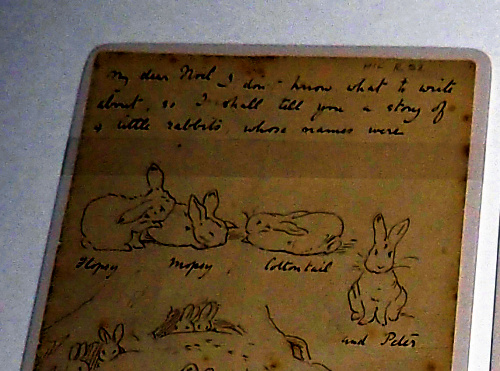 My dear Noel, I don't know what to write
about, so I shall tell you a story of
4 little rabbits, whose names were
Flopsy, Mopsy, Cottontail
and Peter